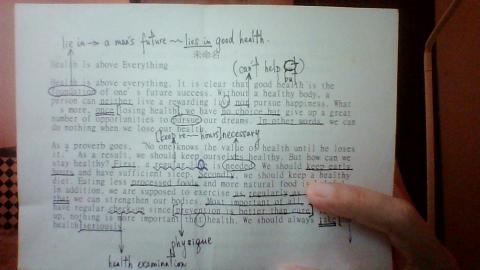 lie in → a man's future ~ lies in good health.
未命名
Health is above Everything
(can't help but
Health is above everything. It is clear that good health is the
foundation of one's future success. Without a healthy body, a
person can neither live a rewarding life nor pursue happiness. What
's more, once losing health, we have no choice but give up a great
number of opportunities to pursue our dreams. In other words, we can
do nothing when we lose our health.
necessary
As a proverb goes, "No one knows the value of health until he loses
it. As a result, we should keep ourselves healthy. But how can we
stay healthy? First, a regular is needed. We should keep early
hours and have sufficient sleep. Secondly, we should keep a healthy
diet. Eating less processed foods and more natural food is
In addition, we are supposed to exercise as regularly as
that we can strengthen our bodies. Most important of all,
have regular since prevention is better than cure.
up, nothing is more important than health. We should always take
health seriously.
physique
health examination